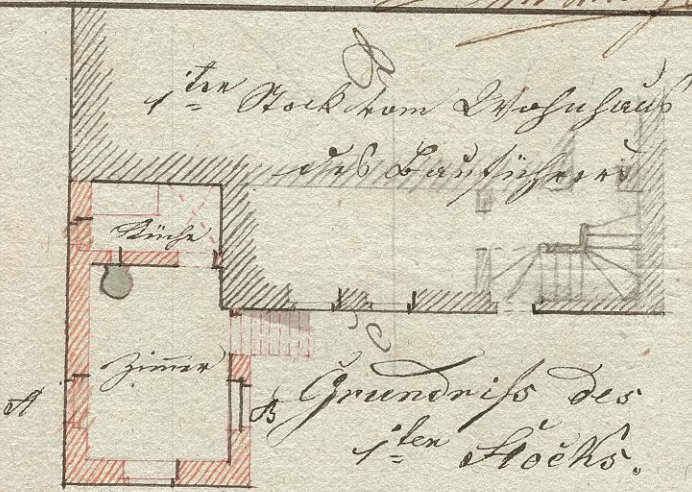 1ten Stock vom Wohnhaus
des Bauführers
Küche
Zimer
A
B
C
Grundriss des
1ten Stocks.